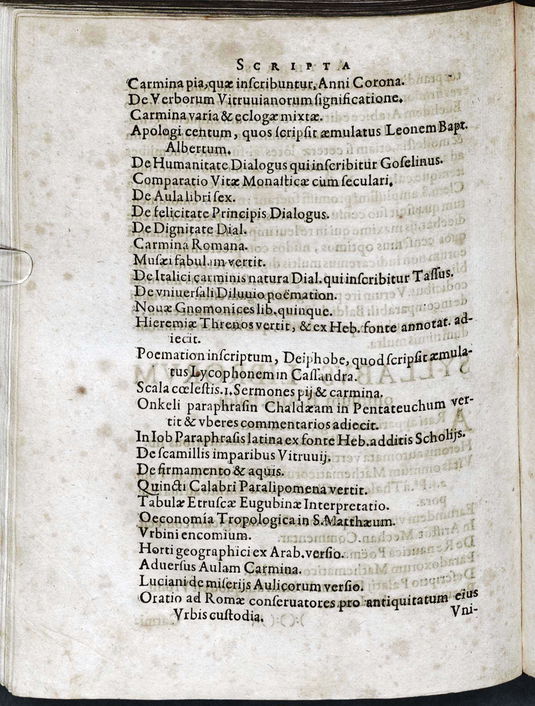 SCRIPTA
Carmina pia, quæ inscribuntur, Anni Corona.
De Verborum Vitruuianorum significatione.
Carmina varia & eclogæ mixtæ.
Apologi centum, quos scripsit æmulatus Leonem Bapt.
Albertum.
De Humanitate Dialogus qui inscribitur Goselinus.
Comparatio Vitæ Monasticæ cum seculari.
De Aula libri sex.
De felicitate Principis Dialogus.
De Dignitate Dial.
Carmina Romana.
Musæi fabulam vertit.
De Italici carminis natura Dial. qui inscribitur Tassus.
De vniuersali Diluuio poëmation.
Nouæ Gnomonices lib. quinque.
Hieremiæ Threnos vertit, & ex Heb. fonte annotat. ad-
iecit.
Poemation inscriptum, Deiphobe, quod scripsit æmula-
tus Lycophonem in Cassandra.
Scala cœlestis. 1. Sermones pij & carmina.
Onkeli paraphrasin Chaldæam in Pentateuchum ver-
tit & vberes commentarios adiecit.
In Iob Paraphrasis latina ex fonte Heb. additis Scholijs.
De scamillis imparibus Vitruuij.
De firmamento & aquis.
Quincti Calabri Paralipomena vertit.
Tabulæ Etruscæ Eugubinæ Interpretatio.
Oeconomia Tropologica in S. Matthæum.
Vrbini encomium.
Horti geographici ex Arab. versio.
Aduersus Aulam Carmina.
Luciani de miserijs Aulicorum versio.
Oratio ad Romæ conseruatores pro antiquitatum eius
Vrbis custodia.
Vni-